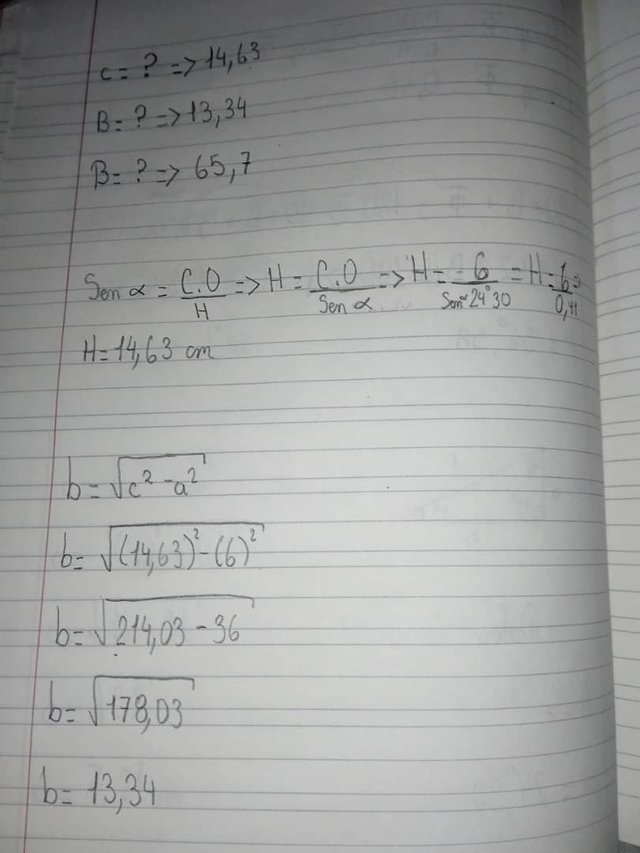 c = ? => 14,63
B = ? => 13,34
B = ? => 65,7
Sen α = C.O / H => H = C.O / Sen α => H = 6 / Sen 24° 30 = H = 6 / 0,41
H = 14,63 cm
b = √c² - a²
b = √(14,63)² - (6)²
b = √214,03 - 36
b = √178,03
b = 13,34